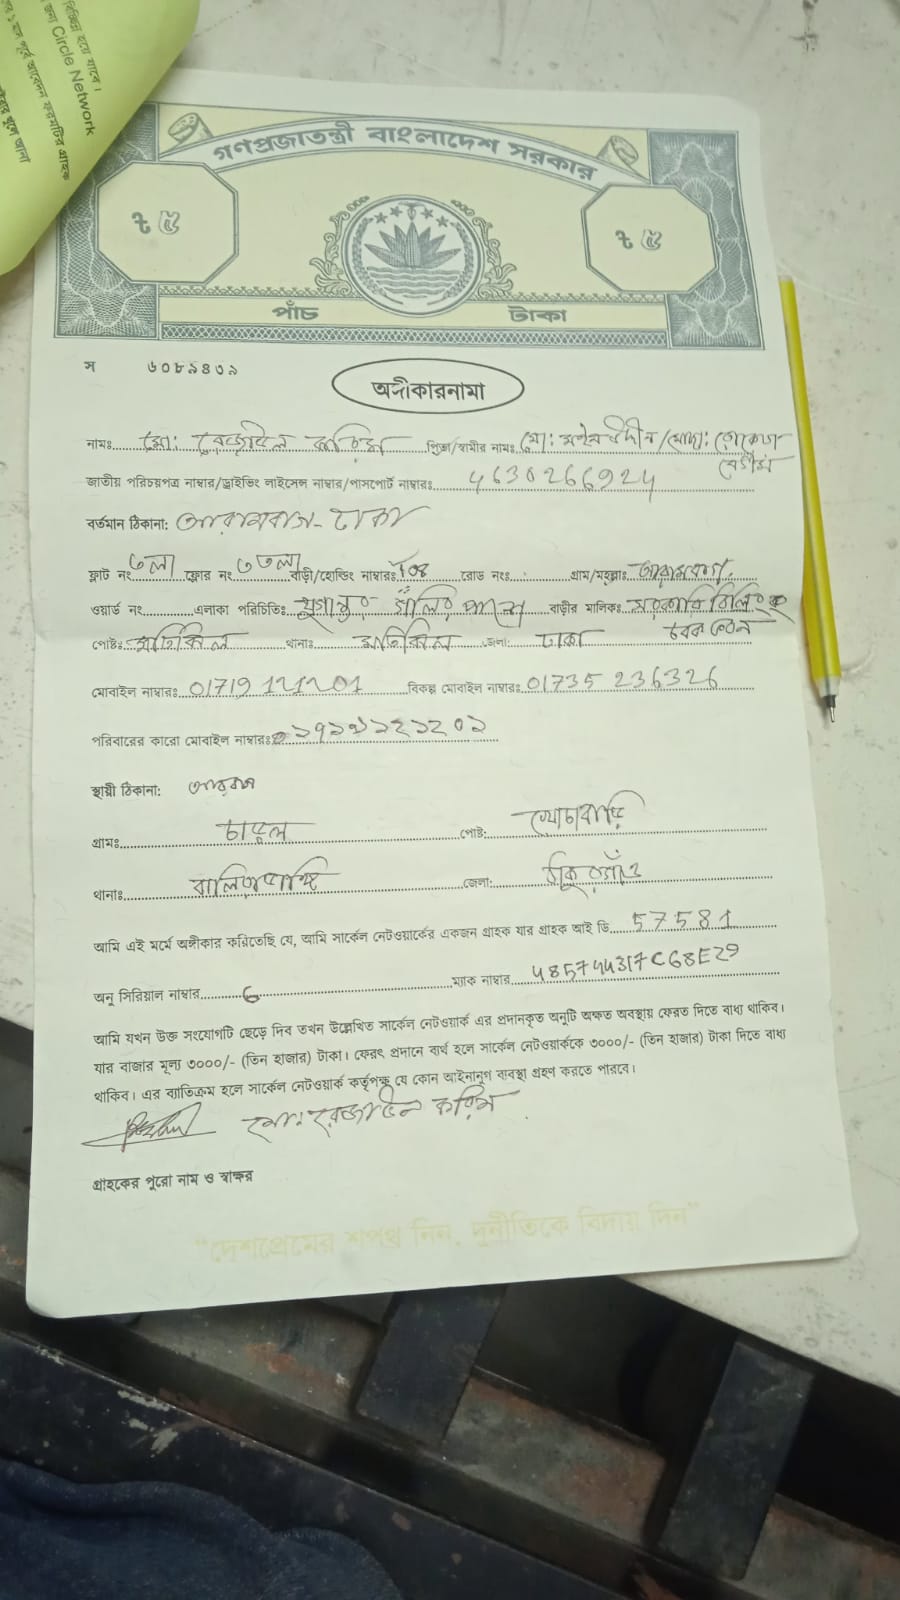 বিচ্ছিন্ন হয়ে যাবে।
জন্য Circle Network
১ মাস পূর্বে আবেদন ফরমটির গ্রাহক
খুলে আনা
গণপ্রজাতন্ত্রী বাংলাদেশ সরকার
৳ ৫ ৳ ৫
পাঁচ টাকা
স ৬০৮৯৪৩৯
অঙ্গীকারনামা
নামঃ মো: রেজাউল করিম পিতা/স্বামীর নামঃ মো: মঈনউদ্দীন/মোছা: রোকেয়া
বেগম
জাতীয় পরিচয়পত্র নাম্বার/ড্রাইভিং লাইসেন্স নাম্বার/পাসপোর্ট নাম্বারঃ 4630266924
বর্তমান ঠিকানা: আরামবাগ-ঢাকা
ফ্লাট নং ৩লা ফ্লোর নং ৩ তলা বাড়ী/হোল্ডিং নাম্বারঃ রোড নংঃ গ্রাম/মহল্লাঃ আরামবাগ
ওয়ার্ড নং এলাকা পরিচিতিঃ বাড়ীর মালিকঃ সরকারি বিল্ডিং
পোষ্টঃ মতিঝিল থানাঃ মতিঝিল জেলা: ঢাকা
মোবাইল নাম্বারঃ 01719121201 বিকল্প মোবাইল নাম্বারঃ 01735 236326
পরিবারের কারো মোবাইল নাম্বারঃ ০১৭১৯১২১২০১
স্থায়ী ঠিকানা:
গ্রামঃ চাড়ুল পোষ্ট: খোচাবাড়ি
থানাঃ বালিয়াডাঙ্গি জেলা: ঠাকুরগাঁও
আমি এই মর্মে অঙ্গীকার করিতেছি যে, আমি সার্কেল নেটওয়ার্কের একজন গ্রাহক যার গ্রাহক আই ডি 57581
অনু সিরিয়াল নাম্বার 6 ম্যাক নাম্বার 485744317C68E29
আমি যখন উক্ত সংযোগটি ছেড়ে দিব তখন উল্লেখিত সার্কেল নেটওয়ার্ক এর প্রদানকৃত অনুটি অক্ষত অবস্থায় ফেরত দিতে বাধ্য থাকিব।
যার বাজার মূল্য ৩০০০/- (তিন হাজার) টাকা। ফেরৎ প্রদানে ব্যর্থ হলে সার্কেল নেটওয়ার্ককে ৩০০০/- (তিন হাজার) টাকা দিতে বাধ্য
থাকিব। এর ব্যতিক্রম হলে সার্কেল নেটওয়ার্ক কর্তৃপক্ষ যে কোন আইনানুগ ব্যবস্থা গ্রহণ করতে পারবে।
মো: রেজাউল করিম
গ্রাহকের পুরো নাম ও স্বাক্ষর
“দেশপ্রেমের শপথ নিন, দুর্নীতিকে বিদায় দিন”